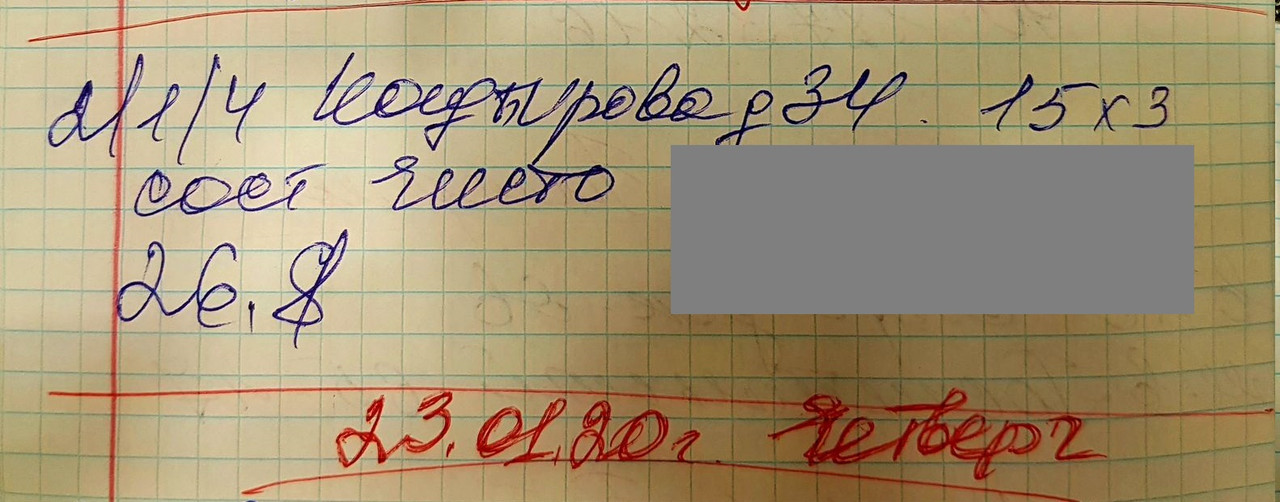 2/1/4 Кадырова д 34. 15х3
сост чисто
26.$
23.01.20г. Четверг